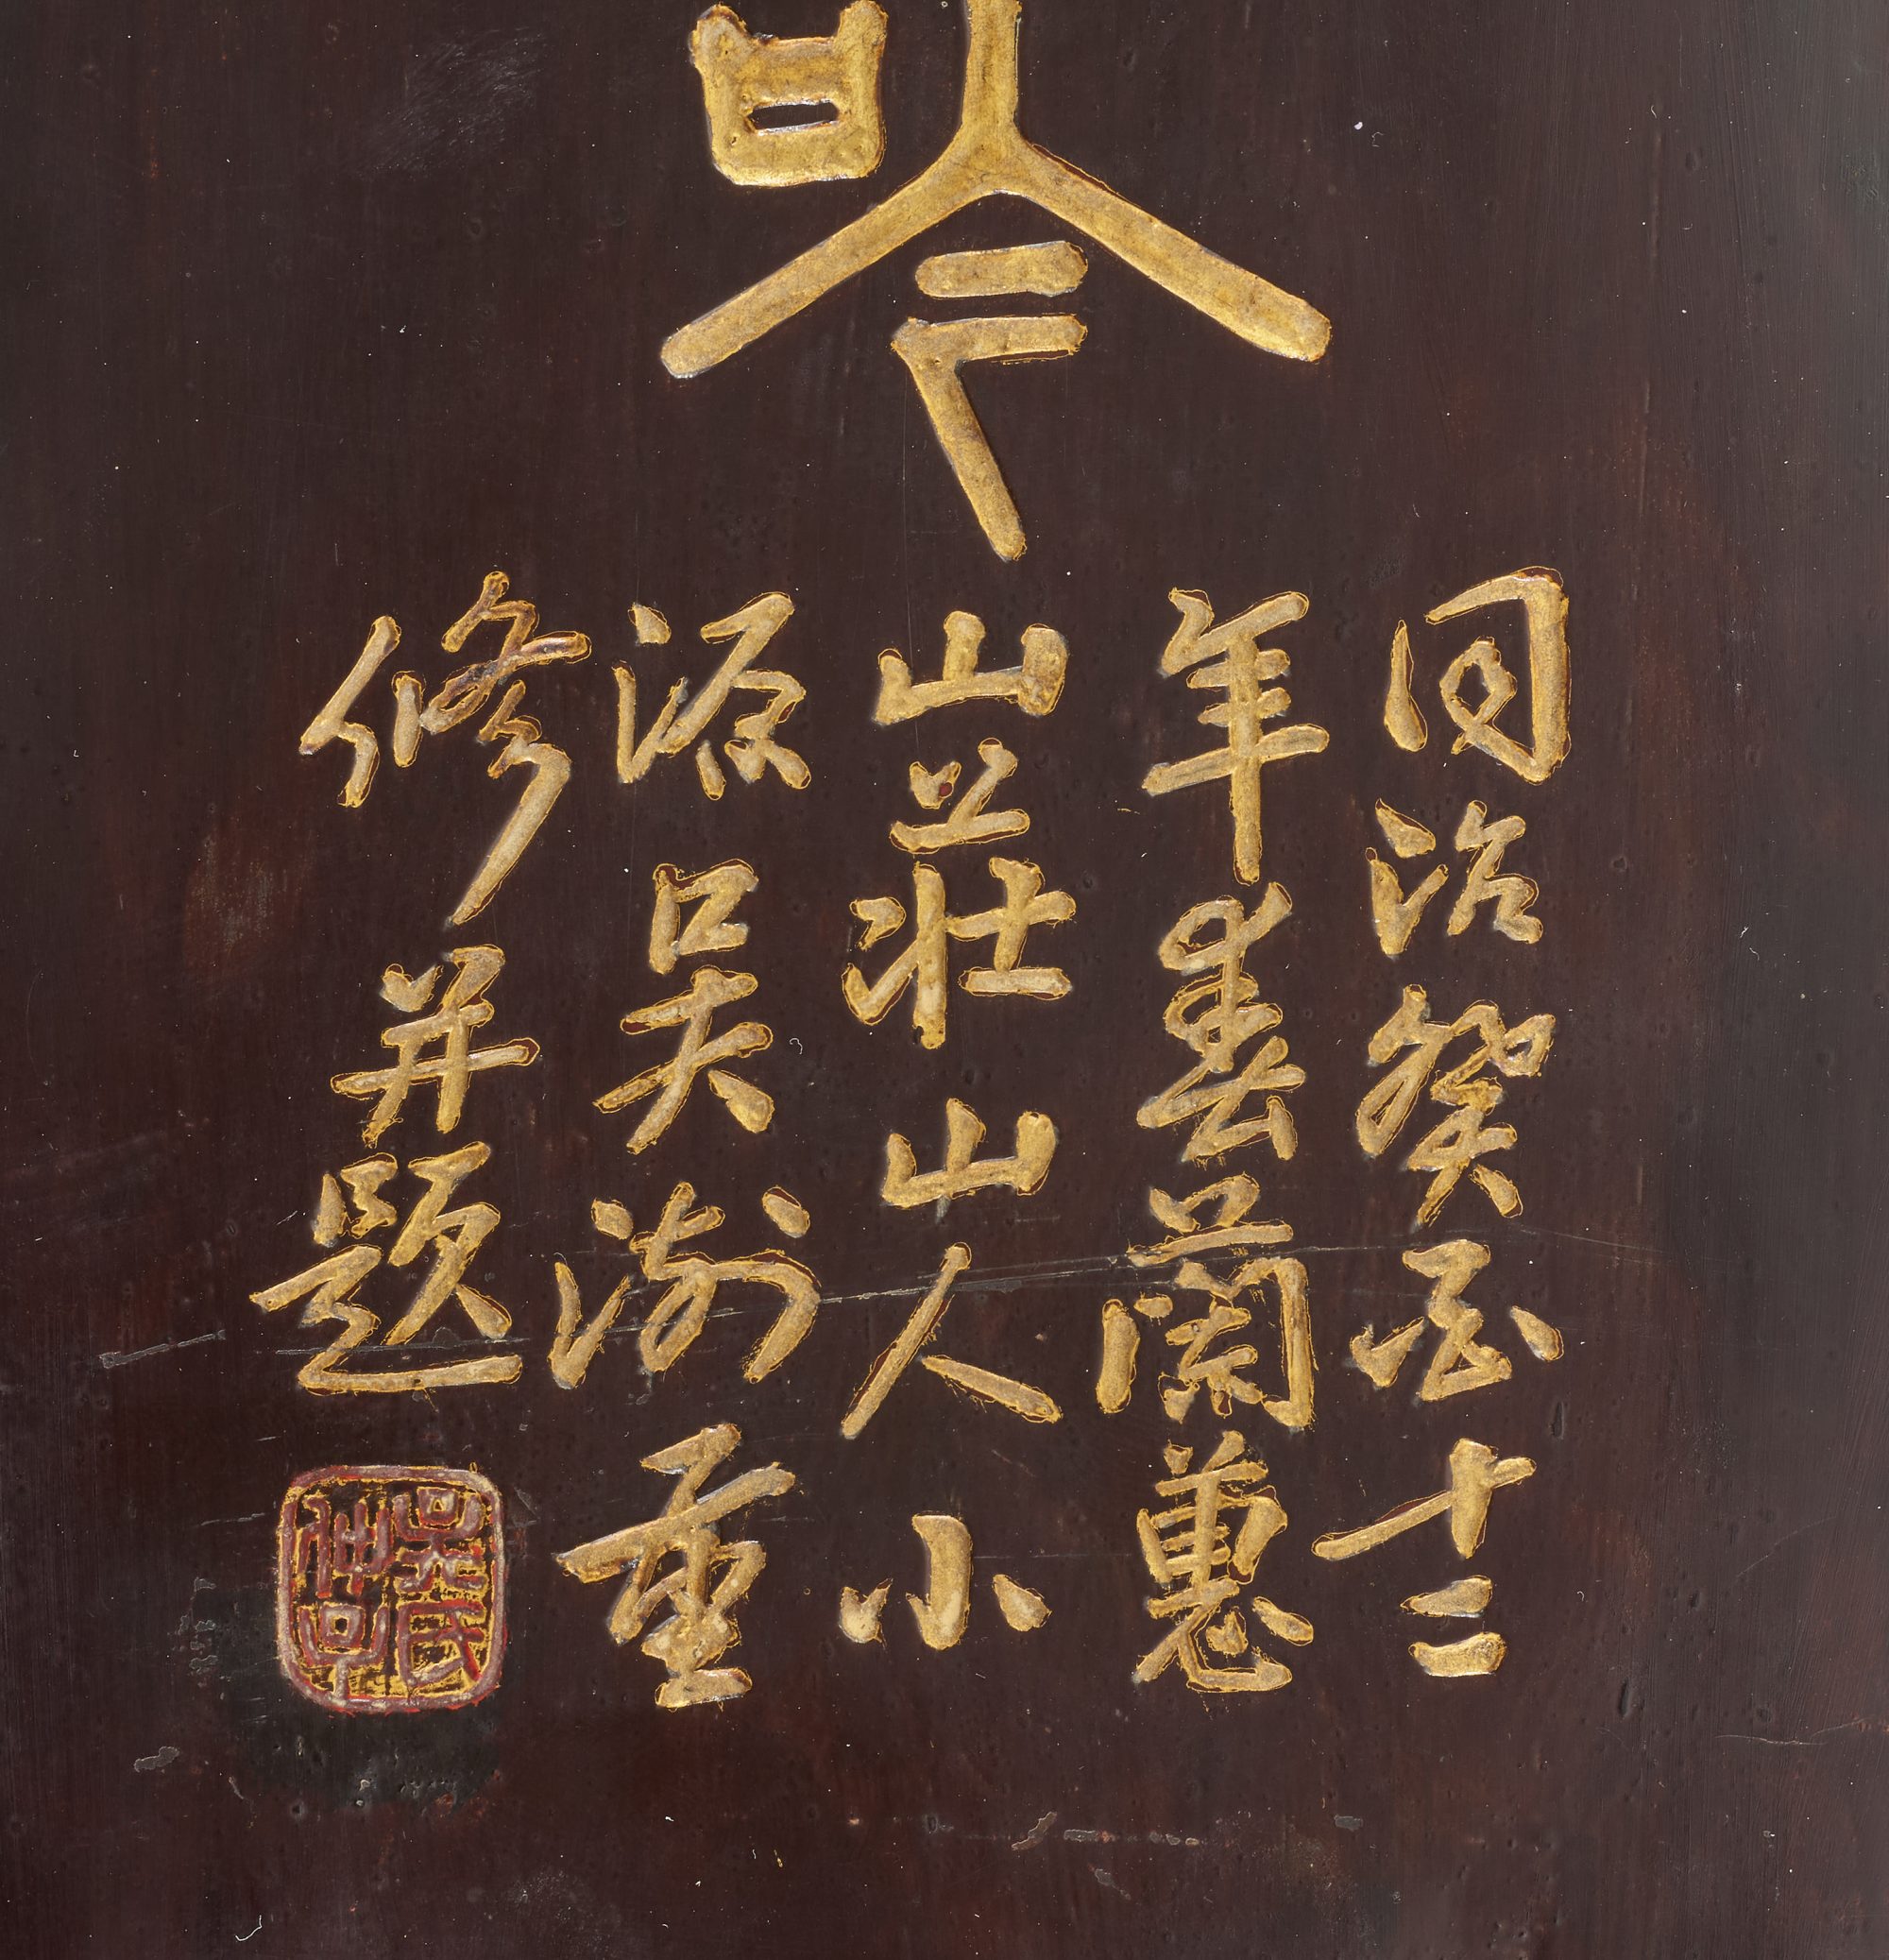 吟
同治癸酉十二
年春蘭蕙
山莊山人小
源吳重
修并題
吳氏